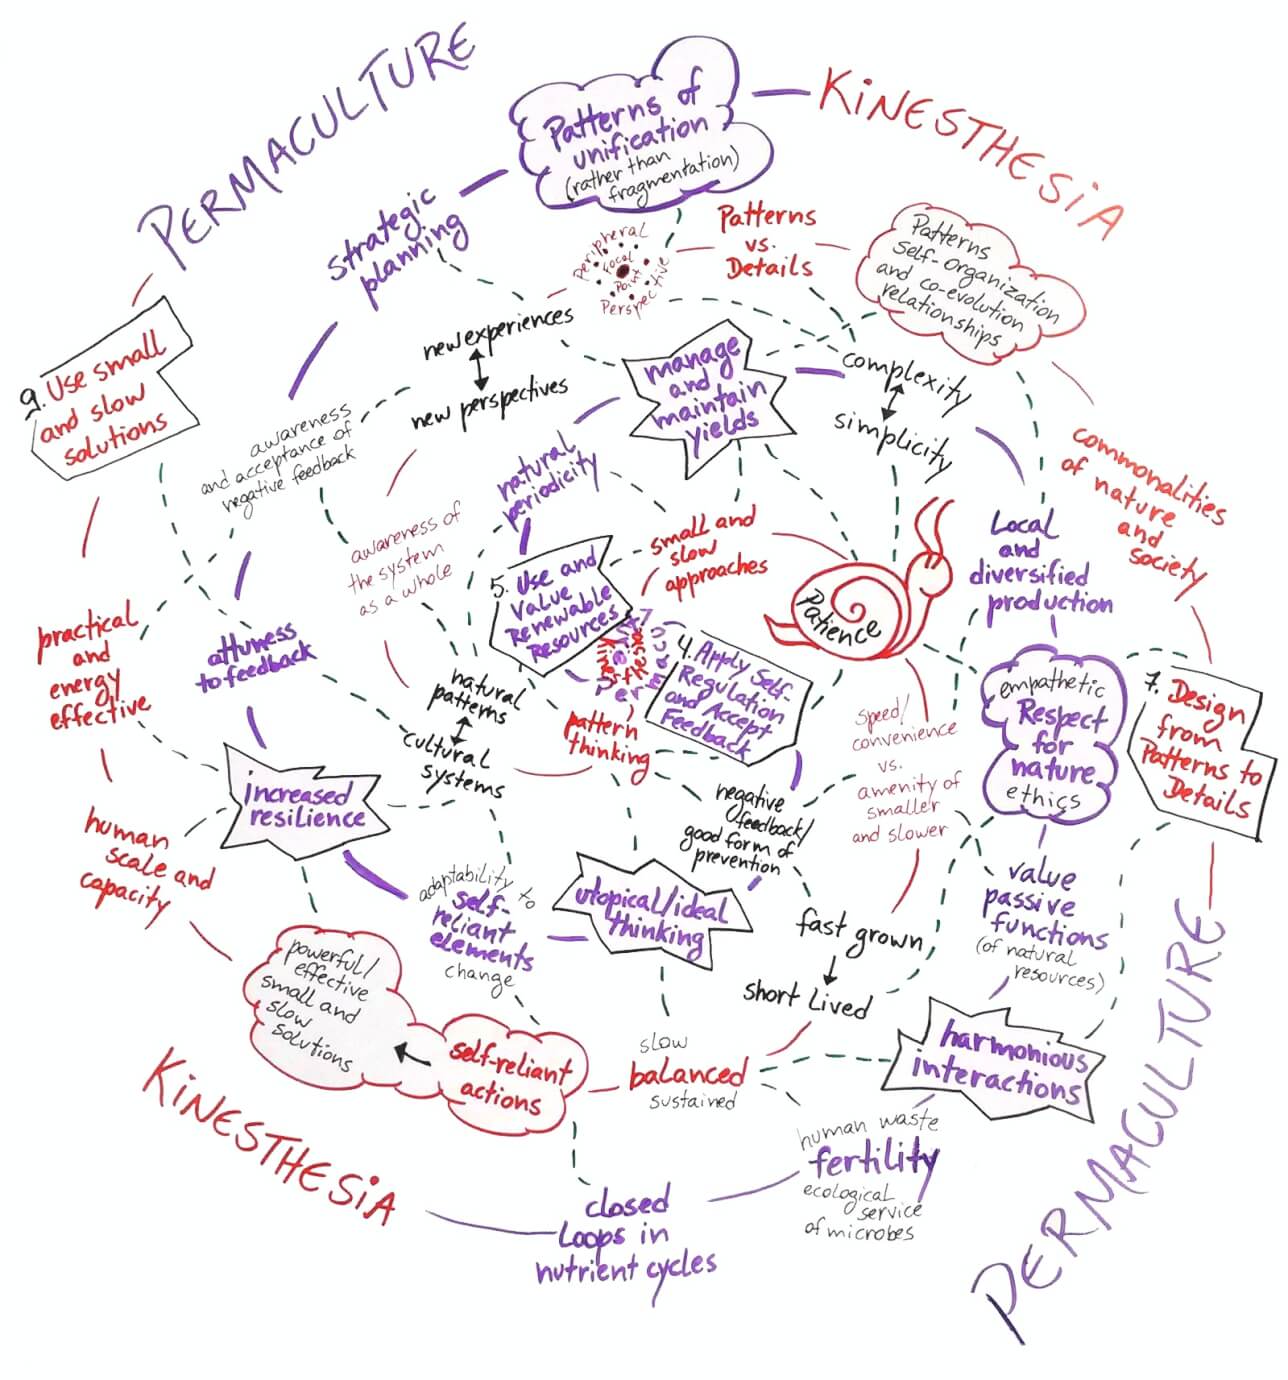 PERMACULTURE
KiNESTHESiA
Patterns of
unification
(rather than
fragmentation)
Strategic
planning
Peripheral
Focal
Point
Perspective
Patterns
vs.
Details
Patterns
Self-Organization
and co-evolution
relationships
new experiences
new perspectives
manage
and
maintain
yields
complexity
simplicity
9. Use small
and slow
solutions
awareness
and acceptance of
negative feedback
natural
periodicity
commonalities
of nature
and
society
awareness of
the system
as a whole
5. Use and
Value
Renewable
Resources
small and
slow
approaches
Patience
Local
and
diversified
production
practical
and
energy
effective
attuness
to feedback
4. Apply Self-
Regulation
and Accept
Feedback
natural
patterns
cultural
systems
pattern
thinking
empathetic
Respect
for
nature
ethics
7. Design
from
Patterns to
Details
speed/
convenience
vs.
amenity of
smaller
and slower
increased
resilience
negative
feedback/
good form of
prevention
human
scale and
capacity
adaptability to
self-
reliant
elements
change
utopical/ideal
thinking
value
passive
functions
(of natural
resources)
fast grown
short Lived
powerful/
effective
small and
slow
solutions
self-reliant
actions
slow
balanced
sustained
harmonious
interactions
human waste
fertility
ecological
service
of microbes
closed
Loops in
nutrient cycles
KiNESTHESiA
PERMACULTURE